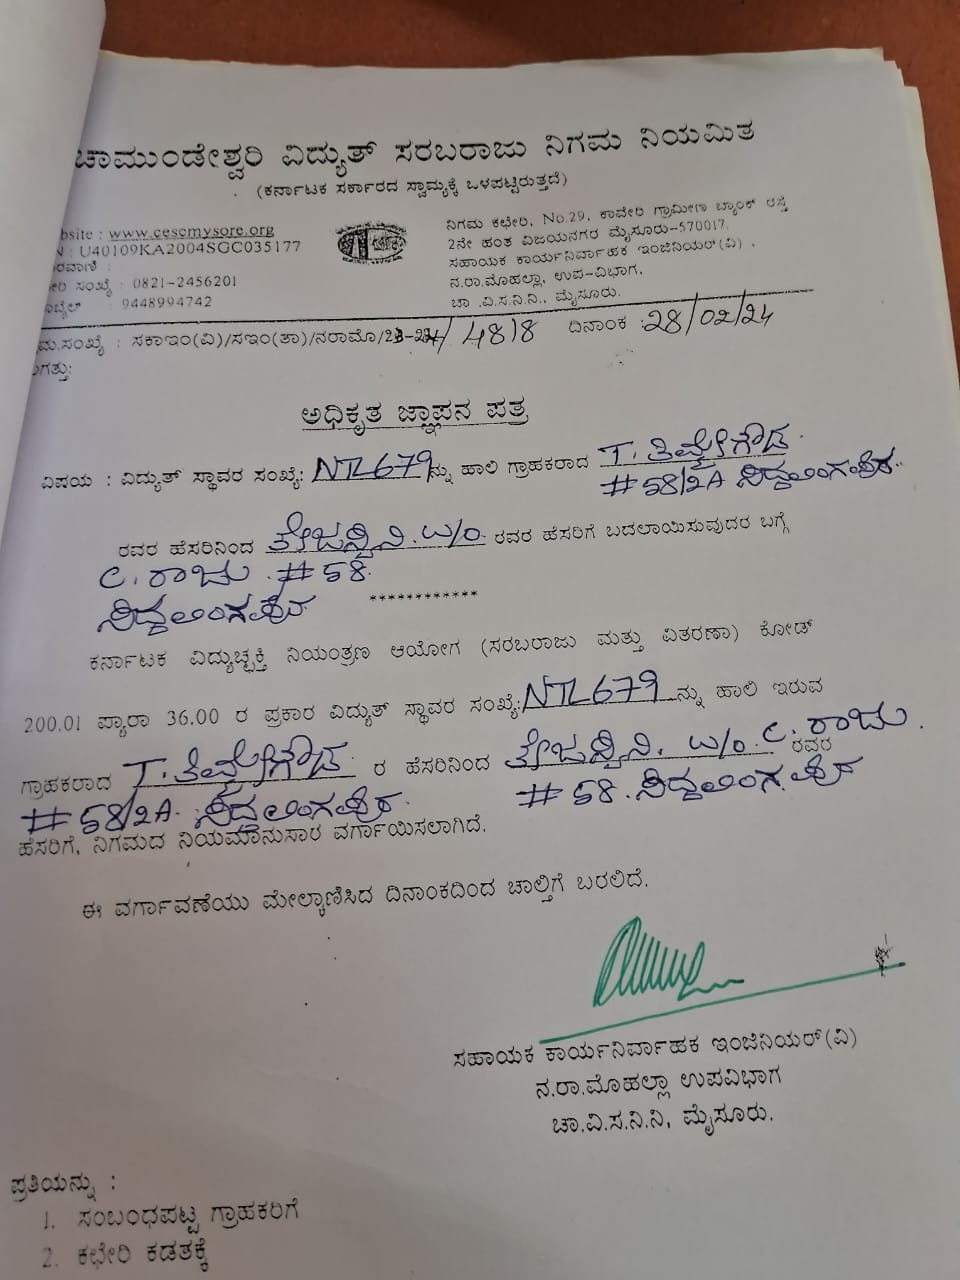 ಚಾಮುಂಡೇಶ್ವರಿ ವಿದ್ಯುತ್ ಸರಬರಾಜು ನಿಗಮ ನಿಯಮಿತ
(ಕರ್ನಾಟಕ ಸರ್ಕಾರದ ಸ್ವಾಮ್ಯಕ್ಕೆ ಒಳಪಟ್ಟಿರುತ್ತದೆ)
bsite : www.cescmysore.org
: U40109KA2004SGC035177
ರವಾಣಿ :
ೇರಿ ಸಂಖ್ಯೆ : 0821-2456201
ೊಬೈಲ್ : 9448994742
ನಿಗಮ ಕಛೇರಿ, No.29, ಕಾವೇರಿ ಗ್ರಾಮೀಣ ಬ್ಯಾಂಕ್ ರಸ್ತೆ
2ನೇ ಹಂತ ವಿಜಯನಗರ ಮೈಸೂರು-570017.
ಸಹಾಯಕ ಕಾರ್ಯನಿರ್ವಾಹಕ ಇಂಜಿನಿಯರ್(ವಿ) ,
ನ.ರಾ.ಮೊಹಲ್ಲಾ, ಉಪ-ವಿಭಾಗ,
ಚಾ .ವಿ.ಸ.ನಿ.ನಿ., ಮೈಸೂರು.
ಮ.ಸಂಖ್ಯೆ : ಸಕಾಇಂ(ವಿ)/ಸಇಂ(ತಾ)/ನರಾಮೊ/23-24/ 4818 ದಿನಾಂಕ :28/02/24
ಗತ್ತು:
ಅಧಿಕೃತ ಜ್ಞಾಪನ ಪತ್ರ
ವಿಷಯ : ವಿದ್ಯುತ್ ಸ್ಥಾವರ ಸಂಖ್ಯೆ: NTL679ನ್ನು ಹಾಲಿ ಗ್ರಾಹಕರಾದ T. ತಿಮ್ಮೇಗೌಡ
#58/2A ಸಿದ್ದಲಿಂಗಪುರ.
ರವರ ಹೆಸರಿನಿಂದ ತೇಜಸ್ವಿನಿ. w/o. ರವರ ಹೆಸರಿಗೆ ಬದಲಾಯಿಸುವುದರ ಬಗ್ಗೆ
C. ರಾಜು . #58.
ಸಿದ್ದಲಿಂಗಪುರ
************
ಕರ್ನಾಟಕ ವಿದ್ಯುಚ್ಛಕ್ತಿ ನಿಯಂತ್ರಣ ಆಯೋಗ (ಸರಬರಾಜು ಮತ್ತು ವಿತರಣಾ) ಕೋಡ್
200.01 ಪ್ಯಾರಾ 36.00 ರ ಪ್ರಕಾರ ವಿದ್ಯುತ್ ಸ್ಥಾವರ ಸಂಖ್ಯೆ:NTL679 ನ್ನು ಹಾಲಿ ಇರುವ
ಗ್ರಾಹಕರಾದ T. ತಿಮ್ಮೇಗೌಡ ರ ಹೆಸರಿನಿಂದ ತೇಜಸ್ವಿನಿ. w/o. C. ರಾಜು. ರವರ
#58/2A. ಸಿದ್ದಲಿಂಗಪುರ. #58. ಸಿದ್ದಲಿಂಗಪುರ
ಹೆಸರಿಗೆ, ನಿಗಮದ ನಿಯಮಾನುಸಾರ ವರ್ಗಾಯಿಸಲಾಗಿದೆ.
ಈ ವರ್ಗಾವಣೆಯು ಮೇಲ್ಕಾಣಿಸಿದ ದಿನಾಂಕದಿಂದ ಚಾಲ್ತಿಗೆ ಬರಲಿದೆ.
ಸಹಾಯಕ ಕಾರ್ಯನಿರ್ವಾಹಕ ಇಂಜಿನಿಯರ್(ವಿ)
ನ.ರಾ.ಮೊಹಲ್ಲಾ ಉಪವಿಭಾಗ
ಚಾ.ವಿ.ಸ.ನಿ.ನಿ, ಮೈಸೂರು.
ಪ್ರತಿಯನ್ನು :
1. ಸಂಬಂಧಪಟ್ಟ ಗ್ರಾಹಕರಿಗೆ
2. ಕಛೇರಿ ಕಡತಕ್ಕೆ